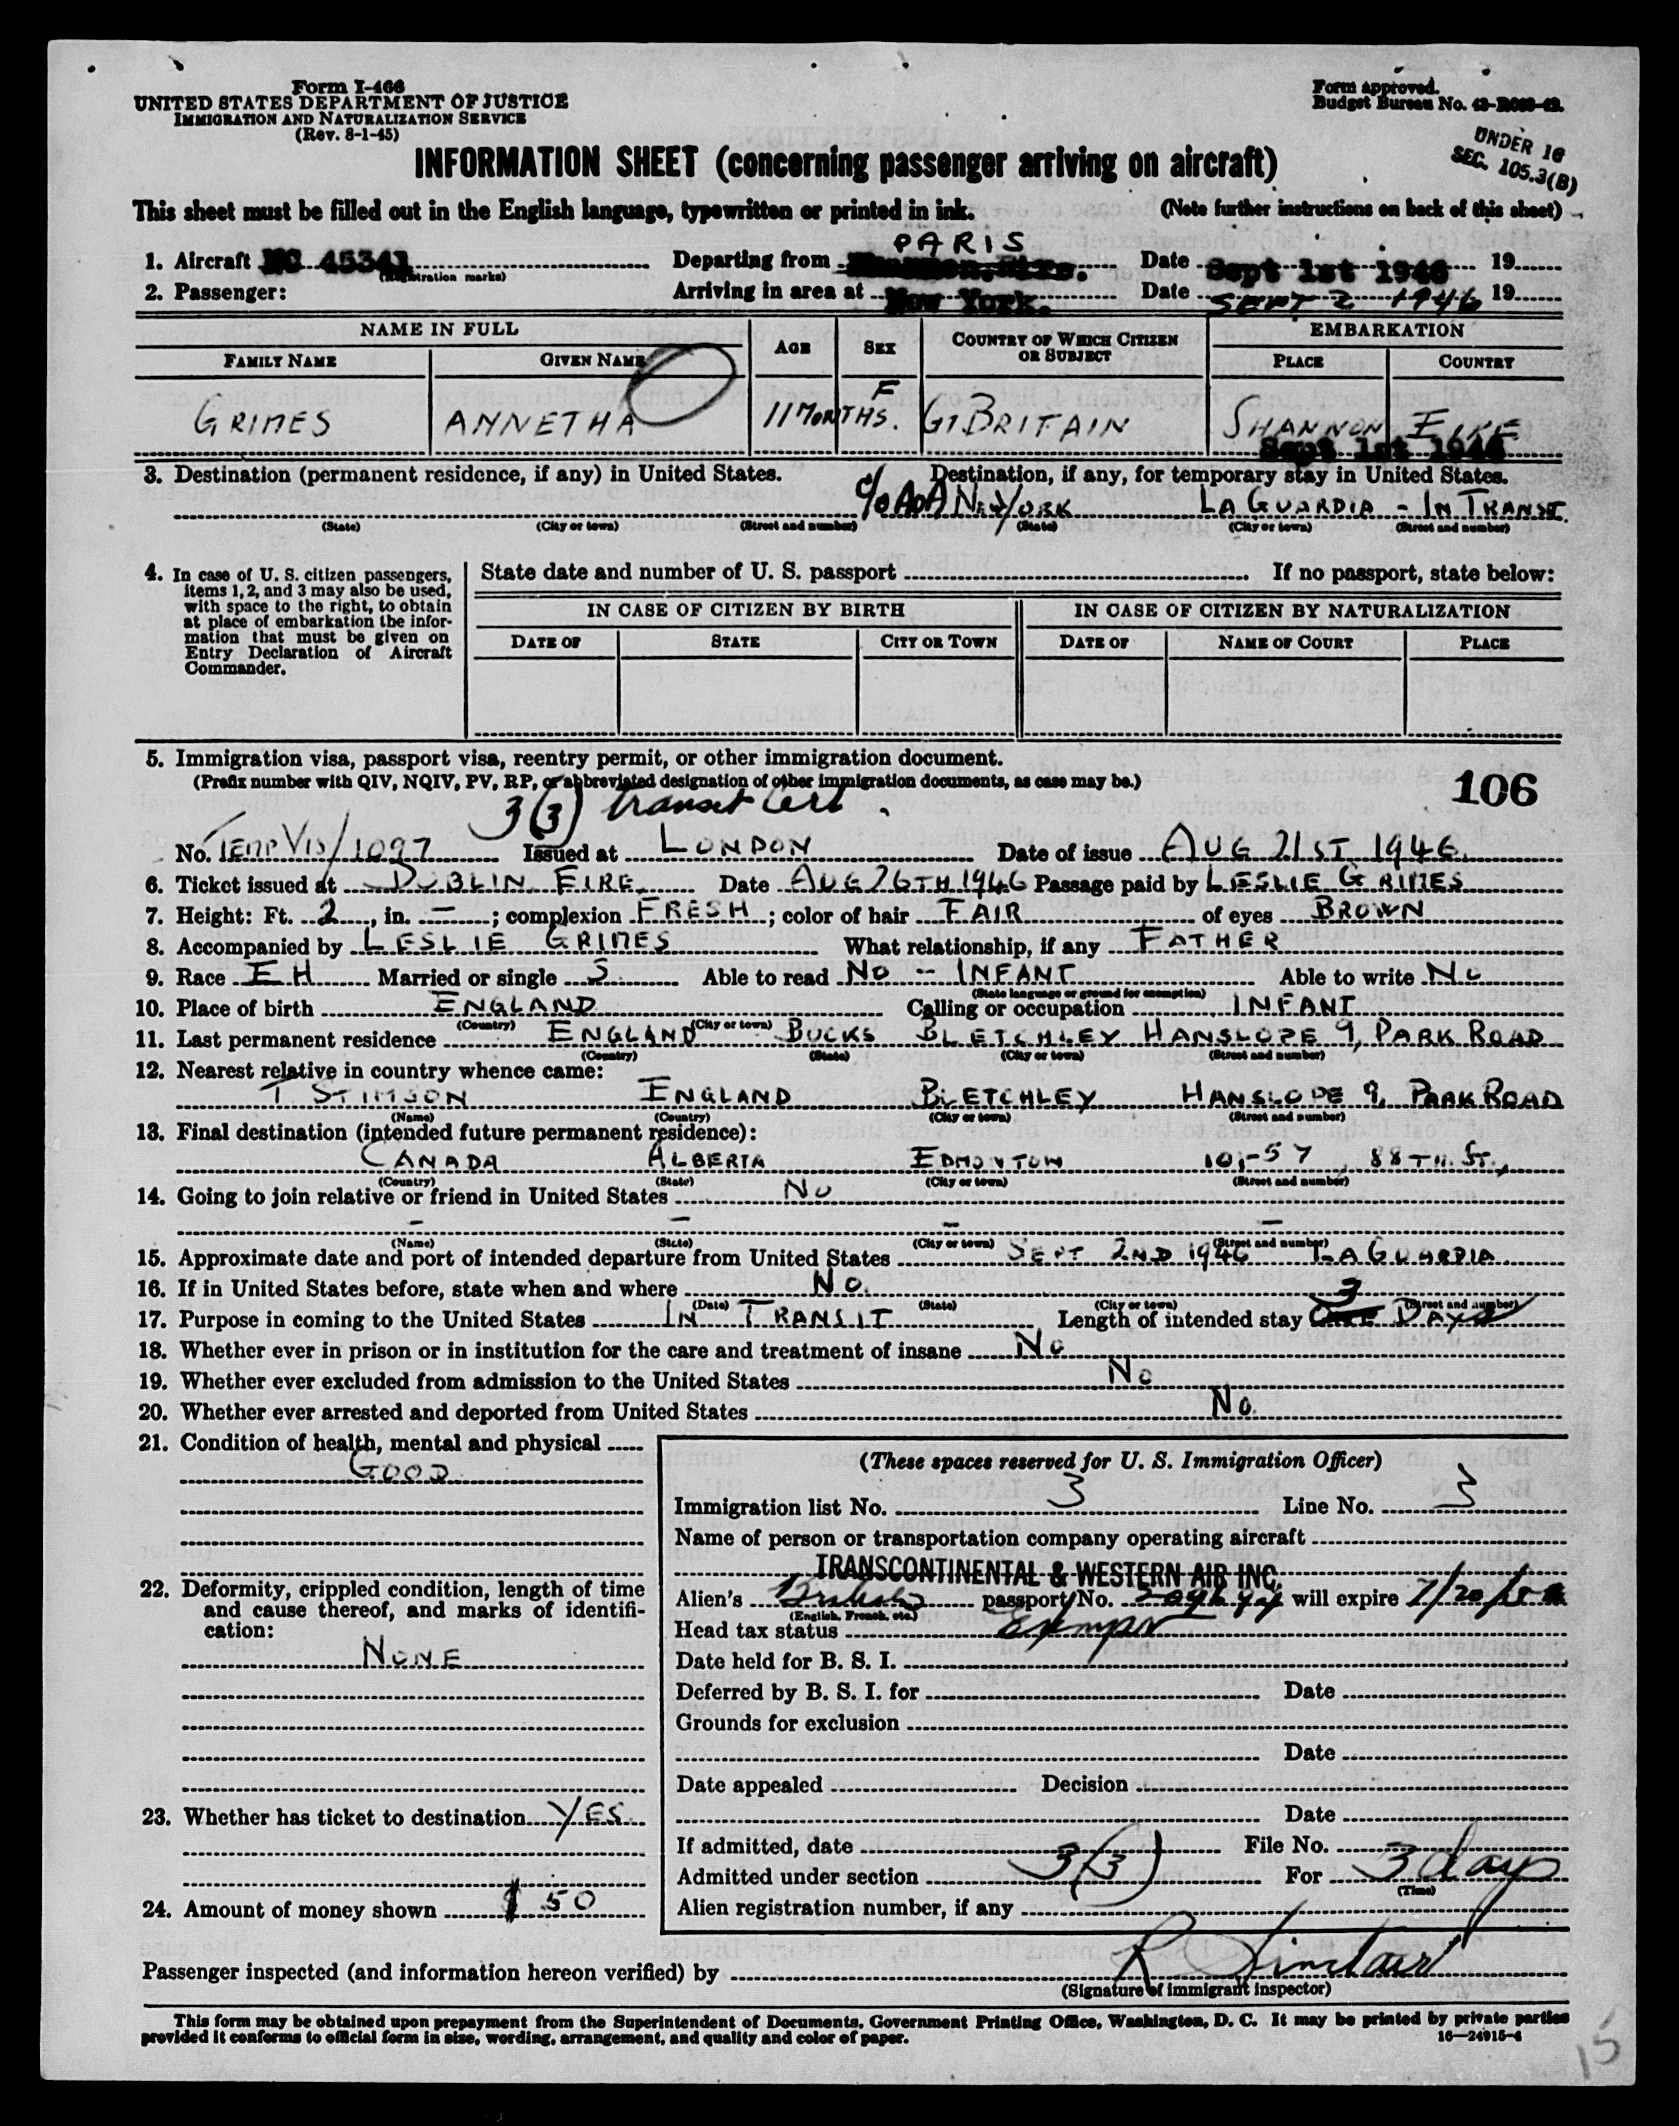 Form I-466
UNITED STATES DEPARTMENT OF JUSTICE
IMMIGRATION AND NATURALIZATION SERVICE
(Rev. 8-1-45)
Form approved.
Budget Bureau No.
UNDER 16
SEC. 105.3(B)
INFORMATION SHEET (concerning passenger arriving on aircraft)
This sheet must be filled out in the English language, typewritten or printed in ink. (Note further instructions on back of this sheet)
PARIS
1. Aircraft NC 45341 Departing from Date Sept 1st 1946 19
(Registration marks)
2. Passenger: Arriving in area at New York. Date SEPT 2 1946 19
NAME IN FULL AGE SEX COUNTRY OF WHICH CITIZEN OR SUBJECT EMBARKATION
FAMILY NAME GIVEN NAME PLACE COUNTRY
GRIMES ANNETHA 11 MONTHS. F GT BRITAIN SHANNON EIRE
Sept 1st 1946
3. Destination (permanent residence, if any) in United States. Destination, if any, for temporary stay in United States.
c/o AOA NEW YORK LA GUARDIA - IN TRANSIT.
(State) (City or town) (Street and number) (State) (City or town) (Street and number)
4. In case of U. S. citizen passengers, items 1, 2, and 3 may also be used, with space to the right, to obtain at place of embarkation the information that must be given on Entry Declaration of Aircraft Commander.
State date and number of U. S. passport If no passport, state below:
IN CASE OF CITIZEN BY BIRTH IN CASE OF CITIZEN BY NATURALIZATION
DATE OF STATE CITY OR TOWN DATE OF NAME OF COURT PLACE
5. Immigration visa, passport visa, reentry permit, or other immigration document.
(Prefix number with QIV, NQIV, PV, RP, or abbreviated designation of other immigration documents, as case may be.)
106
3(3) transit Cert
No. TEMP VIS/1097 Issued at LONDON Date of issue AUG 21ST 1946.
6. Ticket issued at DUBLIN EIRE Date AUG 26TH 1946 Passage paid by LESLIE GRIMES
7. Height: Ft. 2, in. —; complexion FRESH; color of hair FAIR of eyes BROWN
8. Accompanied by LESLIE GRIMES What relationship, if any FATHER
9. Race EH Married or single S. Able to read NO - INFANT Able to write NO
(State language or ground for exemption)
10. Place of birth ENGLAND Calling or occupation INFANT
(Country) (City or town)
11. Last permanent residence ENGLAND BUCKS BLETCHLEY HANSLOPE 9, PARK ROAD
(Country) (State) (City or town) (Street and number)
12. Nearest relative in country whence came:
T STIMSON ENGLAND BLETCHLEY HANSLOPE 9, PARK ROAD
(Name) (Country) (City or town) (Street and number)
13. Final destination (intended future permanent residence):
CANADA ALBERTA EDMONTON 101-57, 88TH. ST.,
(Country) (State) (City or town) (Street and number)
14. Going to join relative or friend in United States NO
— — — —
(Name) (State) (City or town) (Street and number)
15. Approximate date and port of intended departure from United States SEPT 2ND 1946 LA GUARDIA.
16. If in United States before, state when and where NO.
(Date) (State) (City or town) (Street and number)
17. Purpose in coming to the United States IN TRANSIT Length of intended stay 3 DAYS
18. Whether ever in prison or in institution for the care and treatment of insane NO
19. Whether ever excluded from admission to the United States NO
20. Whether ever arrested and deported from United States NO.
21. Condition of health, mental and physical
GOOD
22. Deformity, crippled condition, length of time and cause thereof, and marks of identification:
NONE
23. Whether has ticket to destination YES.
24. Amount of money shown $ 50
(These spaces reserved for U. S. Immigration Officer)
Immigration list No. 3 Line No. 3
Name of person or transportation company operating aircraft
TRANSCONTINENTAL & WESTERN AIR INC.
Alien's British passport No. will expire
(English, French, etc.)
Head tax status Exempt
Date held for B. S. I.
Deferred by B. S. I. for Date
Grounds for exclusion
Date
Date appealed Decision
Date
If admitted, date File No.
Admitted under section 3(3) For 3 days
(Time)
Alien registration number, if any
Passenger inspected (and information hereon verified) by R Sinclair
(Signature of immigrant inspector)
This form may be obtained upon prepayment from the Superintendent of Documents, Government Printing Office, Washington, D. C. It may be printed by private parties
provided it conforms to official form in size, wording, arrangement, and quality and color of paper. 16—24915-4
15